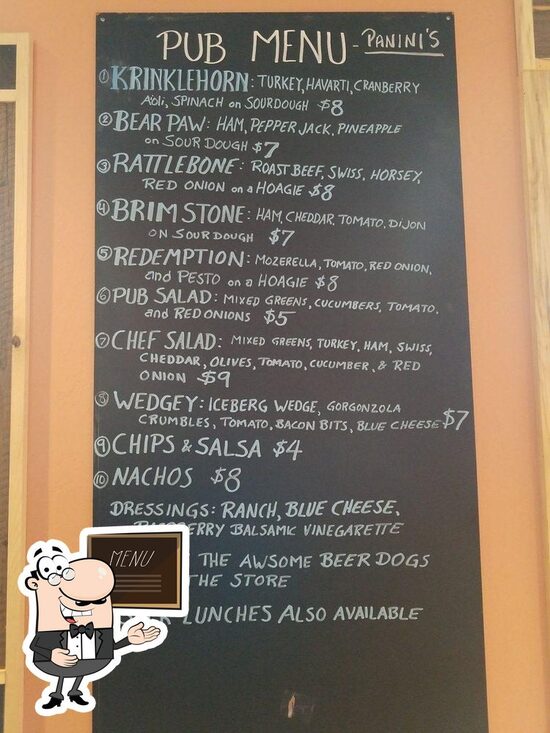 PUB MENU - PANINI'S
① KRINKLEHORN: TURKEY, HAVARTI, CRANBERRY
AIOLI, SPINACH on SOURDOUGH $8
② BEAR PAW: HAM, PEPPER JACK, PINEAPPLE
on SOURDOUGH $7
③ RATTLEBONE: ROAST BEEF, SWISS, HORSEY,
RED ONION on a HOAGIE $8
④ BRIM STONE: HAM, CHEDDAR, TOMATO, DIJON
ON SOURDOUGH $7
⑤ REDEMPTION: MOZERELLA, TOMATO, RED ONION,
and PESTO on a HOAGIE $8
⑥ PUB SALAD: MIXED GREENS, CUCUMBERS, TOMATO,
and RED ONIONS $5
⑦ CHEF SALAD: MIXED GREENS, TURKEY, HAM, SWISS,
CHEDDAR, OLIVES, TOMATO, CUCUMBER, & RED
ONION $9
⑧ WEDGEY: ICEBERG WEDGE, GORGONZOLA
CRUMBLES, TOMATO, BACON BITS, BLUE CHEESE $7
⑨ CHIPS & SALSA $4
⑩ NACHOS $8
DRESSINGS: RANCH, BLUE CHEESE,
BALSAMIC VINEGARETTE
THE AWSOME BEER DOGS
THE STORE
LUNCHES ALSO AVAILABLE
MENU